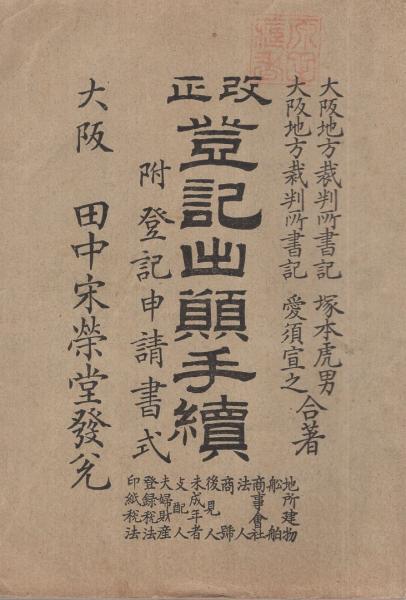 大阪地方裁判所書記 塚本虎男
大阪地方裁判所書記 愛須宣之
合著
改正
登記出願手續
附登記申請書式
地所建物
船舶
商事會社
法人
商號
後見人
未成年者
支配人
夫婦財産
登録税法
印紙税法
大阪 田中宋榮堂發兌